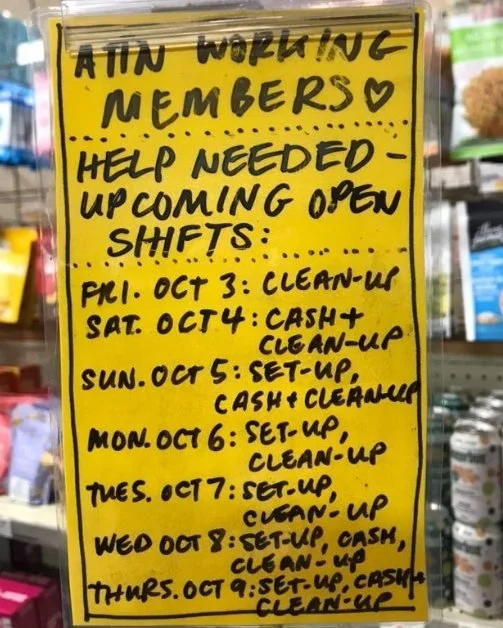 ATTN WORKING
MEMBERS♡
HELP NEEDED-
UPCOMING OPEN
SHIFTS:
FRI. OCT 3: CLEAN-UP
SAT. OCT 4: CASH+
CLEAN-UP
SUN. OCT 5: SET-UP,
CASH+CLEAN-UP
MON. OCT 6: SET-UP,
CLEAN-UP
TUES. OCT 7: SET-UP,
CLEAN-UP
WED OCT 8: SET-UP, CASH,
CLEAN-UP
THURS. OCT 9: SET-UP, CASH+
CLEAN-UP